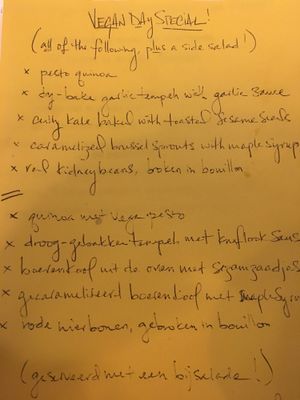 VEGAN DAY SPECIAL!
(all of the following, plus a side salad!)
x pesto quinoa
x dry-bake garlic tempeh with garlic sauce
x curly kale baked with toasted sesame seeds
x caramelized brussel sprouts with maple syrup
x red kidney beans, broken in bouillon
x quinoa met vega pesto
x droog-gebakken tempeh met knoflook saus
x boerenkool uit de oven met sezamzaadjes
x gecarameliseerd boerenkool met maple syr
x rode nierbonen, gebroken in bouillon
(geserveerd met een bijsalade!)